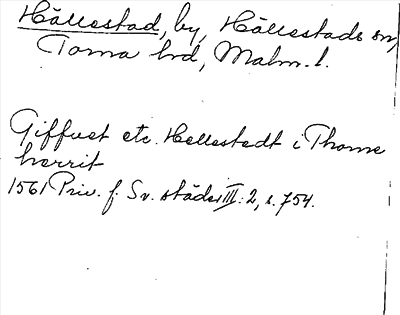 Hällestad, by, Hällestads sn,
Torna hrd, Malm. l.
Giffuet etc. Hellestedt i Thorne
herrit
1561 Priv. f. Sv. städer III: 2, s. 754.